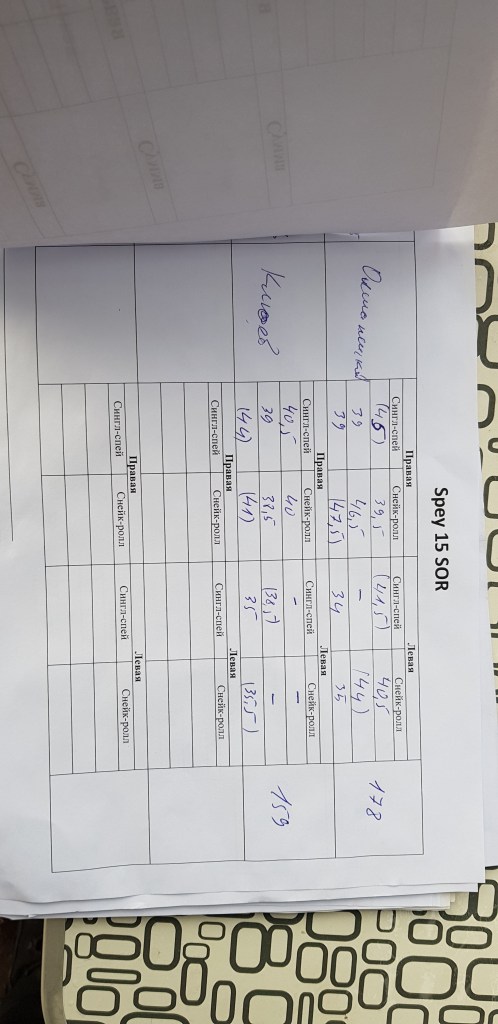 Spey 15 SOR
Правая Левая
Сингл-спей Снейк-ролл Сингл-спей Снейк-ролл
(45) 39,5 (41,5) 40,5
39 46,5 – (44) 178
39 (47,5) 34 35
Правая Левая
Сингл-спей Снейк-ролл Сингл-спей Снейк-ролл
40,5 40 – –
Клюев 39 38,5 (38,5) – 159
(44) (41) 35 (35,5)
Правая Левая
Сингл-спей Снейк-ролл Сингл-спей Снейк-ролл
Правая Левая
Сингл-спей Снейк-ролл Сингл-спей Снейк-ролл